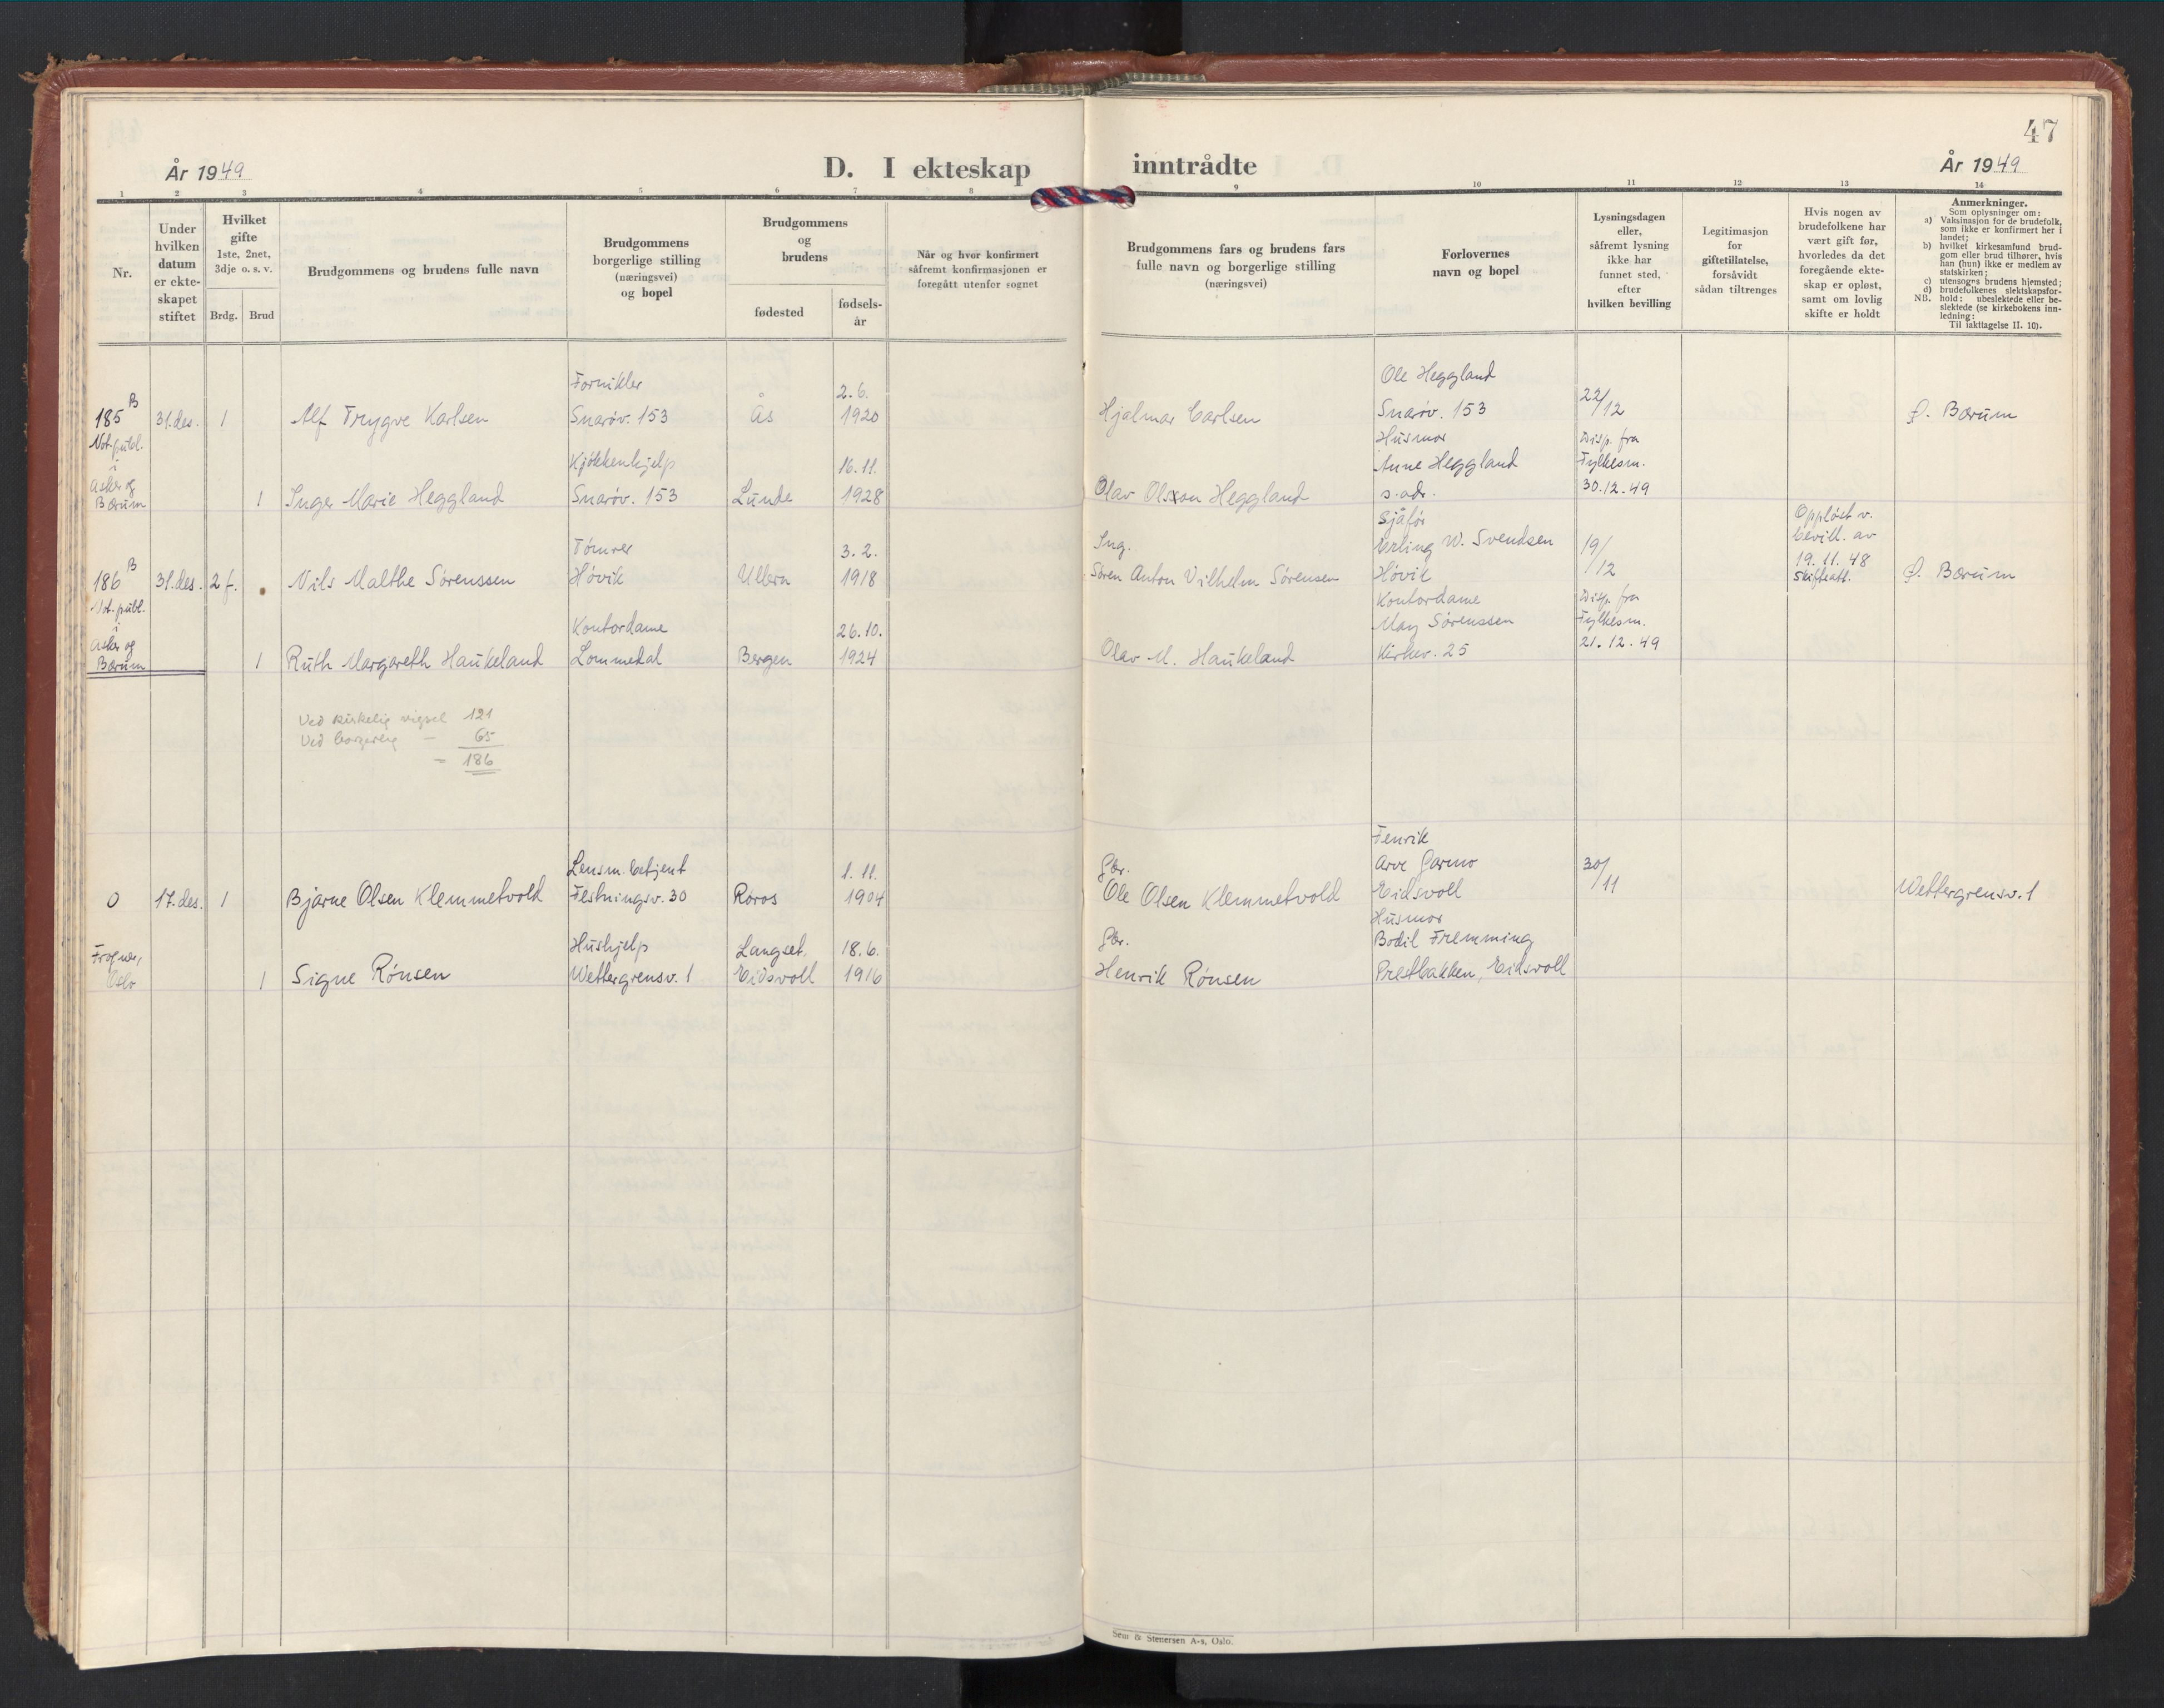 47
År 1949
D. I ekteskap inntrådte
År 1949
1 2 3 4 5 6 7 8 9 10 11 12 13 14
Nr.
Under
hvilken
datum
er ekte-
skapet
stiftet
Hvilket
gifte
1ste, 2net,
3dje o. s. v.
Brdg. Brud
Brudgommens og brudens fulle navn
Brudgommens
borgerlige stilling
(næringsvei)
og bopel
Brudgommens
og
brudens
fødested
fødsels-
år
Når og hvor konfirmert
såfremt konfirmasjonen er
foregått utenfor sognet
Brudgommens fars og brudens fars
fulle navn og borgerlige stilling
(næringsvei)
Forlovernes
navn og bopel
Lysningsdagen
eller,
såfremt lysning
ikke har
funnet sted,
efter
hvilken bevilling
Legitimasjon
for
giftetillatelse,
forsåvidt
sådan tiltrenges
Hvis nogen av
brudefolkene har
vært gift før,
hvorledes da det
foregående ekte-
skap er opløst,
samt om lovlig
skifte er holdt
Anmerkninger.
Som oplysninger om:
a) Vaksinasjon for de brudefolk,
som ikke er konfirmert her i
landet;
b) hvilket kirkesamfund brud-
gom eller brud tilhører, hvis
han (hun) ikke er medlem av
statskirken;
c) utensogns brudens hjemsted;
d) brudefolkenes slektskapsfor-
NB. hold: ubeslektede eller be-
slektede (se kirkebokens inn-
ledning:
Til iakttagelse II. 10).
185 B
Not. publ.
i
Asker og
Bærum
31. des.
1
Alf Trygve Karlsen
Fornikler
Snarøv. 153
Ås
2.6.
1920
Hjalmar Carlsen
Ole Heggland
Snarøv. 153
22/12
Ø. Bærum
1
Inger Marie Heggland
Kjøkkenhjelp
Snarøv. 153
Lunde
16.11.
1928
Olav Olsson Heggland
Husmor
Anne Heggland
s. adr.
Disp. fra
Fylkesm.
30.12.49
186 B
Not. publ.
i
Asker og
Bærum
31. des.
2 f.
Nils Malthe Sørenssen
Tømrer
Høvik
Ullern
3.2.
1918
Ing.
Søren Anton Vilhelm Sørensen
Sjåfør
Erling W. Svendsen
Høvik
19/12
Oppløst v.
bevill. av
19.11.48
skifteatt.
Ø. Bærum
1
Ruth Margareth Haukeland
Kontordame
Lommedal
Bergen
26.10.
1924
Olav M. Haukeland
Kontordame
May Sørenssen
Kirkev. 25
Disp. fra
Fylkesm.
21.12.49
Ved kirkelig vigsel 121
Ved borgerlig — 65
= 186
0
Frogner,
Oslo
17. des.
1
Bjarne Olsen Klemmetvold
Lensm. betjent
Festningsv. 30
Røros
1.11.
1904
Gbr.
Ole Olsen Klemmetvold
Fenrik
Arve Garmo
Eidsvoll
30/11
Wettergrensv. 1
1
Signe Rønsen
Hushjelp
Wettergrensv. 1
Langset,
Eidsvoll
18.6.
1916
Gbr.
Henrik Rønsen
Husmor
Bodil Fremming
Prestbakken, Eidsvoll
Sem & Stenersen A-s, Oslo.